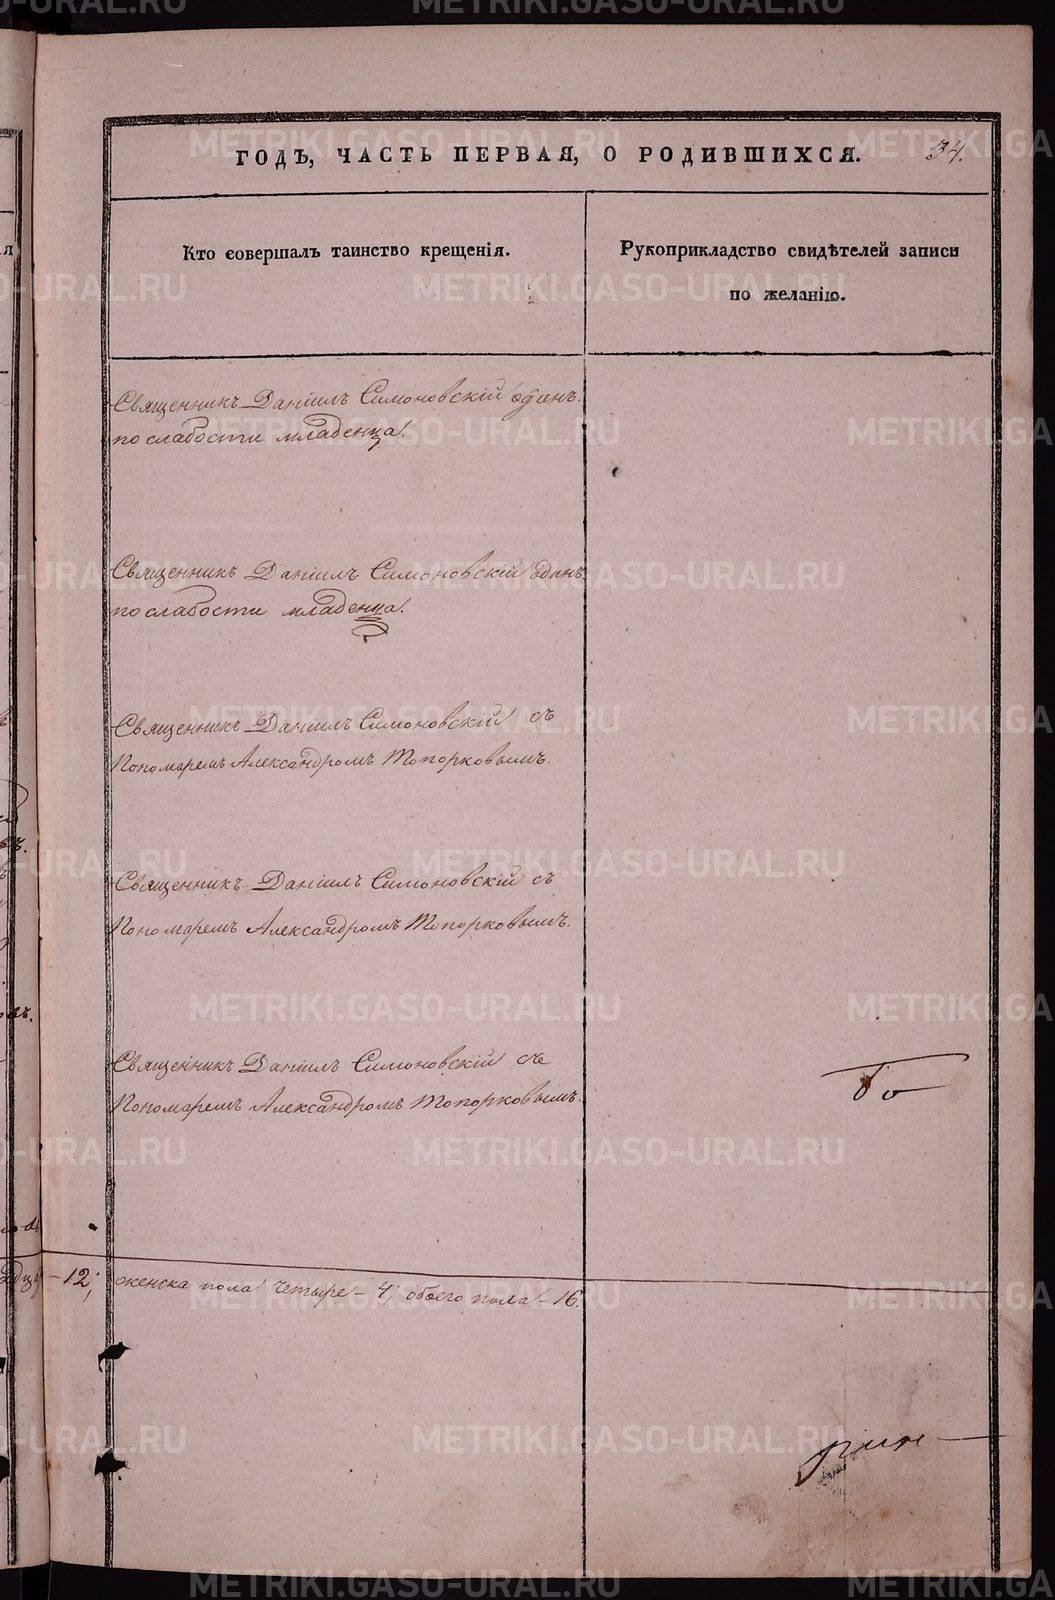 ГОДЪ, ЧАСТЬ ПЕРВАЯ, О РОДИВШИХСЯ. 34.
Кто совершалъ таинство крещенія.
Рукоприкладство свидѣтелей записи
по желанію.
Священникъ Даніилъ Симоновскій /одинъ.
по слабости младенца/.
Священникъ Даніилъ Симоновскій /одинъ
по слабости младенца/.
Священникъ Даніилъ Симоновскій съ
Пономаремъ Александромъ Топорковымъ.
Священникъ Даніилъ Симоновскій съ
Пономаремъ Александромъ Топорковымъ.
Священникъ Даніилъ Симоновскій съ
Пономаремъ Александромъ Топорковымъ.
– 12; женска пола четыре – 4; обоего пола – 16.
METRIKI.GASO-URAL.RU